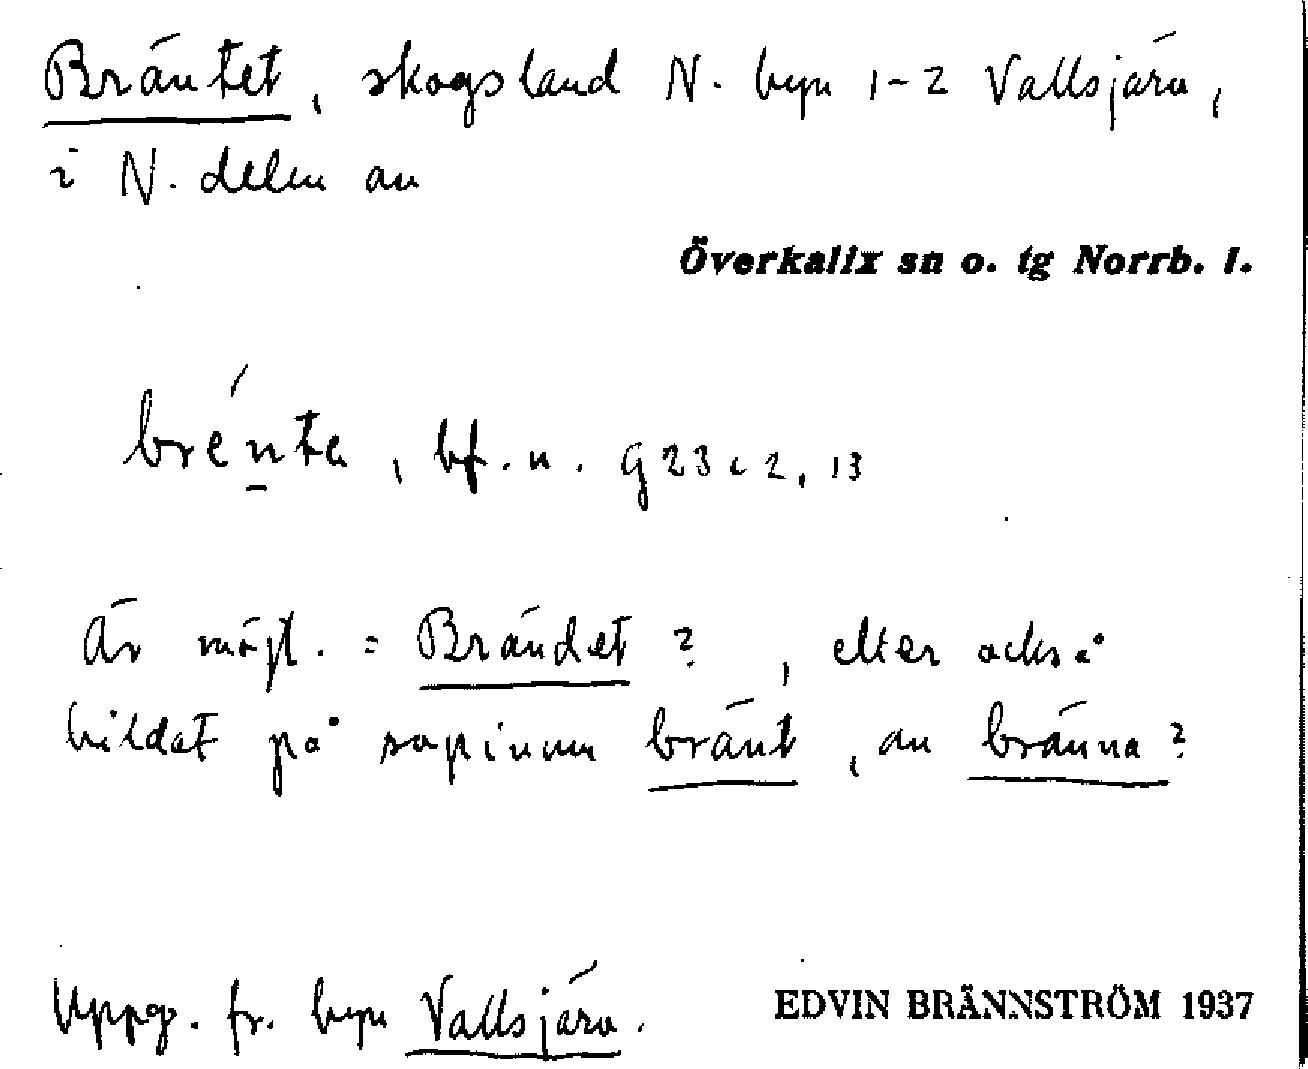 Bräntet, skogsland N. byn 1-2 Vallsjärv,
i N. delen av
Överkalix sn o. tg Norrb. l.
brénta, bf. n. G23c2, 13
Är möjl. = Brändet?, eller också
bildat på supinum bränt, av bränna?
Uppg. fr. byn Vallsjärv.
EDVIN BRÄNNSTRÖM 1937